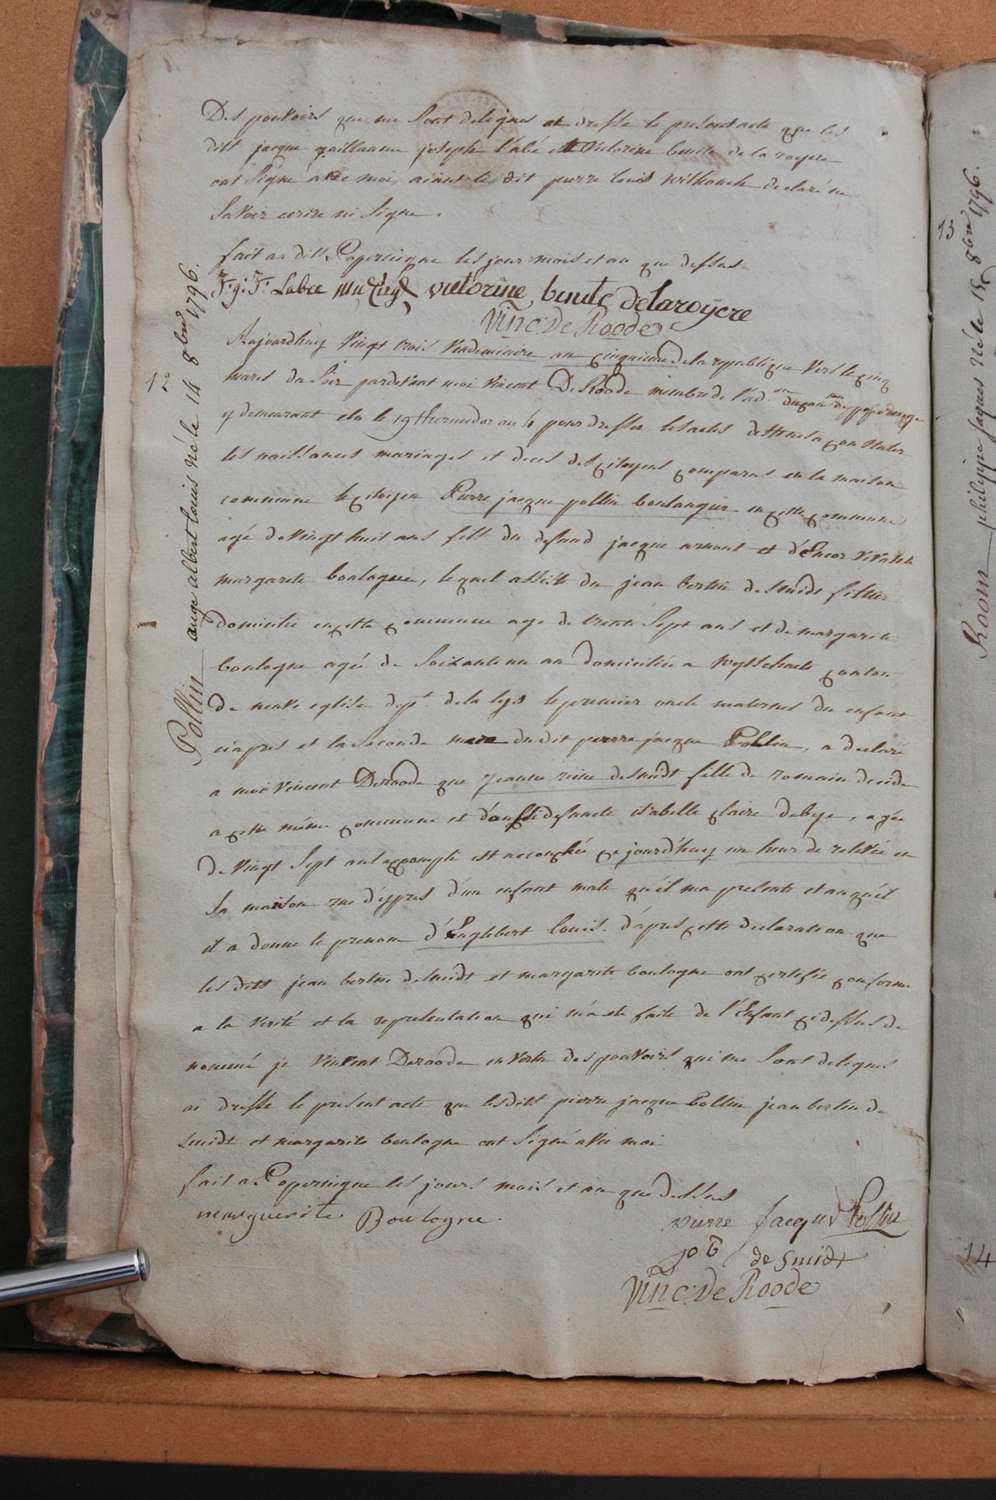 Des pouvoirs que me sont delegues ai dresse le present acte que les
dits jacque guillaume joseph l'abé et victorine benite de la royere
ont signe avec moi, aiant le dit pierre louis declaré ne
savoir ecrire ni signe.
fait a dit Poperingue les jour mois et an que dessus
J: g: J: Labee victorine, benite delaroyere
Vinc: De Roode
Aujourdhuy vingt trois vendemiaire an cinquieme de la republique vers le cinq
heures du soir pardevant moi Vincent De Roode membre de l'ad
y demeurant elu le 19 thermidor an 4 pour dresser les actes destinés a constater
les naissances mariages et deces des citoyens comparus en la maison
commune le citoyen Pierre jacque pollin boulanger en cette commune
agé de vingt huit ans fils du defund jacque arnout et d'Encor vivante
margarite boulogne, lequel assisté du jean bertin desmidt fillier
domicilié en cette commune age de trente sept ans et de margarite
boulogne agée de soixante un an domiciliée a Wytschaete canton
de neuve eglise dep.t de la lys le premier oncle maternel du enfant
ciapres et la seconde mere du dit pierre jacque Pollin, a declaré
a moi Vincent Deroode que jeanne reine desmidt fille de romain decede
a cette même commune et d'aussi defuncte isabelle claire debye, agée
de vingt sept ans accomplis est accouchée ce jourd'huy un heur de relevée en
sa maison rue d'ippres d'un enfant male qu'il ma presenté et auquel
il a donne le prenom d'Englebert Louis. d'apres cette declaration que
les dits jean bertin desmidt et margarite boulogne ont certifié conforme
a la verité et la representation qui m'a ete faite de l'Enfant ci dessus de
nommé je Vincent Deroode en vertu des pouvoirs qui me sont delegues
ai dresse le present acte que lesdits pierre jacque Pollin jean bertin de
Smidt et margarite boulogne ont signé avec moi
fait a Poperingue les jours mois et an que dessus
marguerite Boulogne. pierre Jacques Pollin
job de Smidt
Vinc: De Roode
12
Pollin ange albert louis né le 14 8bre 1796.
13
Room philippe jaques né le 15 8bre 1796.
14